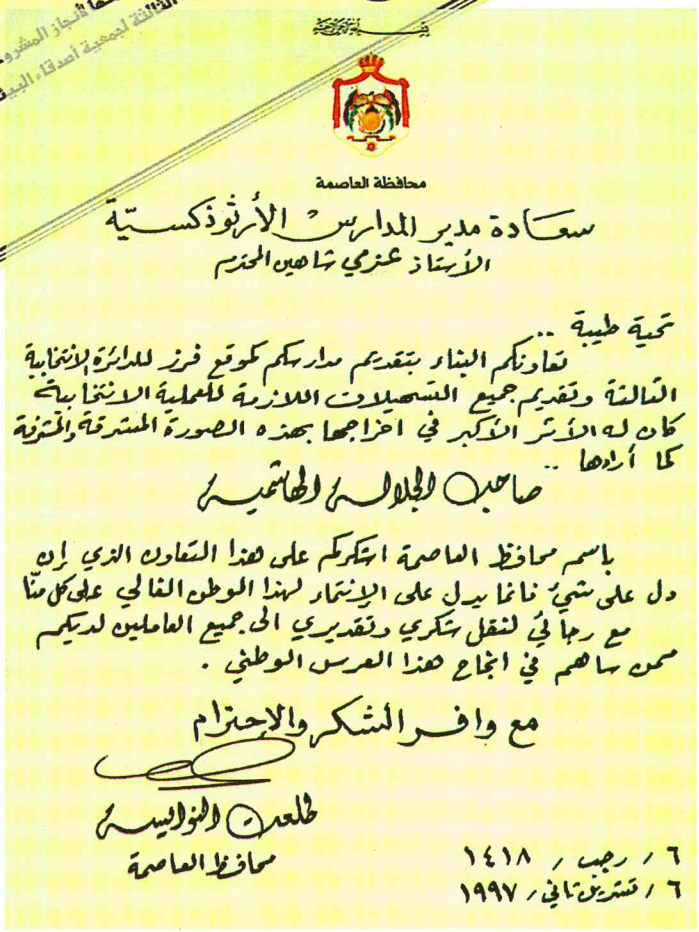 أنجاز المشروع
الثالثة لجمعية أصدقاء البيئة
محافظة العاصمة
سعادة مدير المدارس الأرثوذكسيّة
الأستاذ عزمي شاهين المحترم
تحية طيبة ..
تعاونكم البناء بتقديم مدارسكم كموقع فرز للدائرة الانتخابية
الثالثة وتقديم جميع التسهيلات اللازمة للعملية الانتخابية
كان له الأثر الأكبر في اخراجها بهذه الصورة المشرقة والمشرفة
كما أرادها ..
صاحب الجلالة الهاشمية
باسم محافظ العاصمة اشكركم على هذا التعاون الذي إن
دل على شيء فانما يدل على الإنتماء لهذا الموطن الغالي على كل منّا
مع رجائي لنقل شكري وتقديري الى جميع العاملين لديكم
ممن ساهم في انجاح هذا العرس الوطني .
مع وافر الشكر والإحترام
طلعت النوايسة
محافظ العاصمة
٦ / رجب / ١٤١٨
٦ / تشرين ثاني / ١٩٩٧